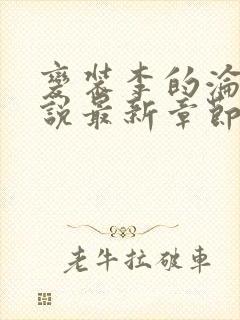 變裝李的淪
說最新章節
老牛拉破車